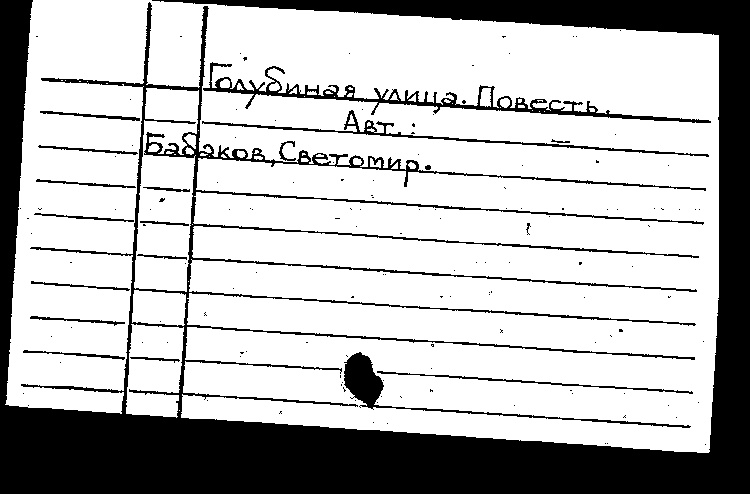 Голубиная улица. Повесть.
Авт.:
Бабаков, Светомир.